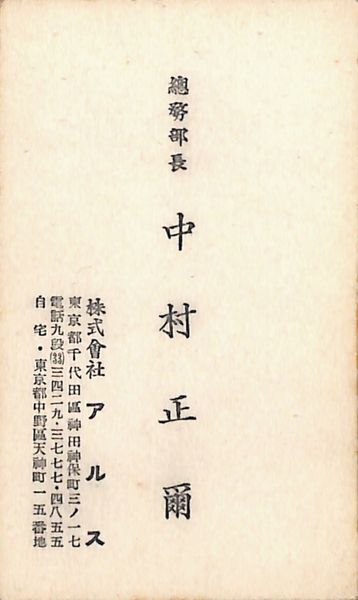 總務部長
中村正爾
株式會社アルス
東京都千代田區神田神保町三ノ一七
電話九段(33)三四二九・三七七七・四八五五
自宅・東京都中野區天神町一五番地